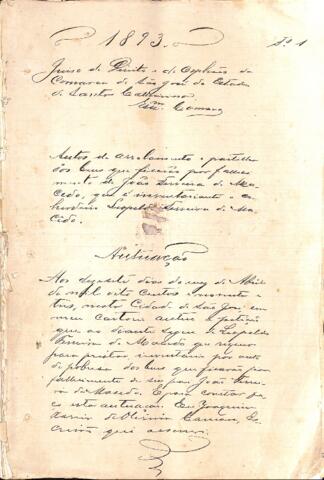 1893.
Fl. 1
Juizo de Direito e de Orphãos da
Comarca de São José do Estado
de Santa Catharina
Câmara
Autos de arrolamento e partilha
dos bens que ficarão por falleci
mento de João Ferreira de Ma
cedo, que é inventariante o
herdeiro Leopoldo Ferreira de Ma
cedo.
Autuação
Aos dias do mez de
de mil oito centos e noventa e
tres, nesta Cidade de São José em
meu cartorio autuei a petição
que ao diante segue de Leopoldo
Ferreira de Macedo que requer
para prestar inventario por
dos bens que ficarão por
fallecimento de seu pae João Ferrei
ra de Macedo. E para constar fa
ço esta autuação. Eu Joaquim
Xavier d'Oliveira Camara, Es
crivão que escrevi.